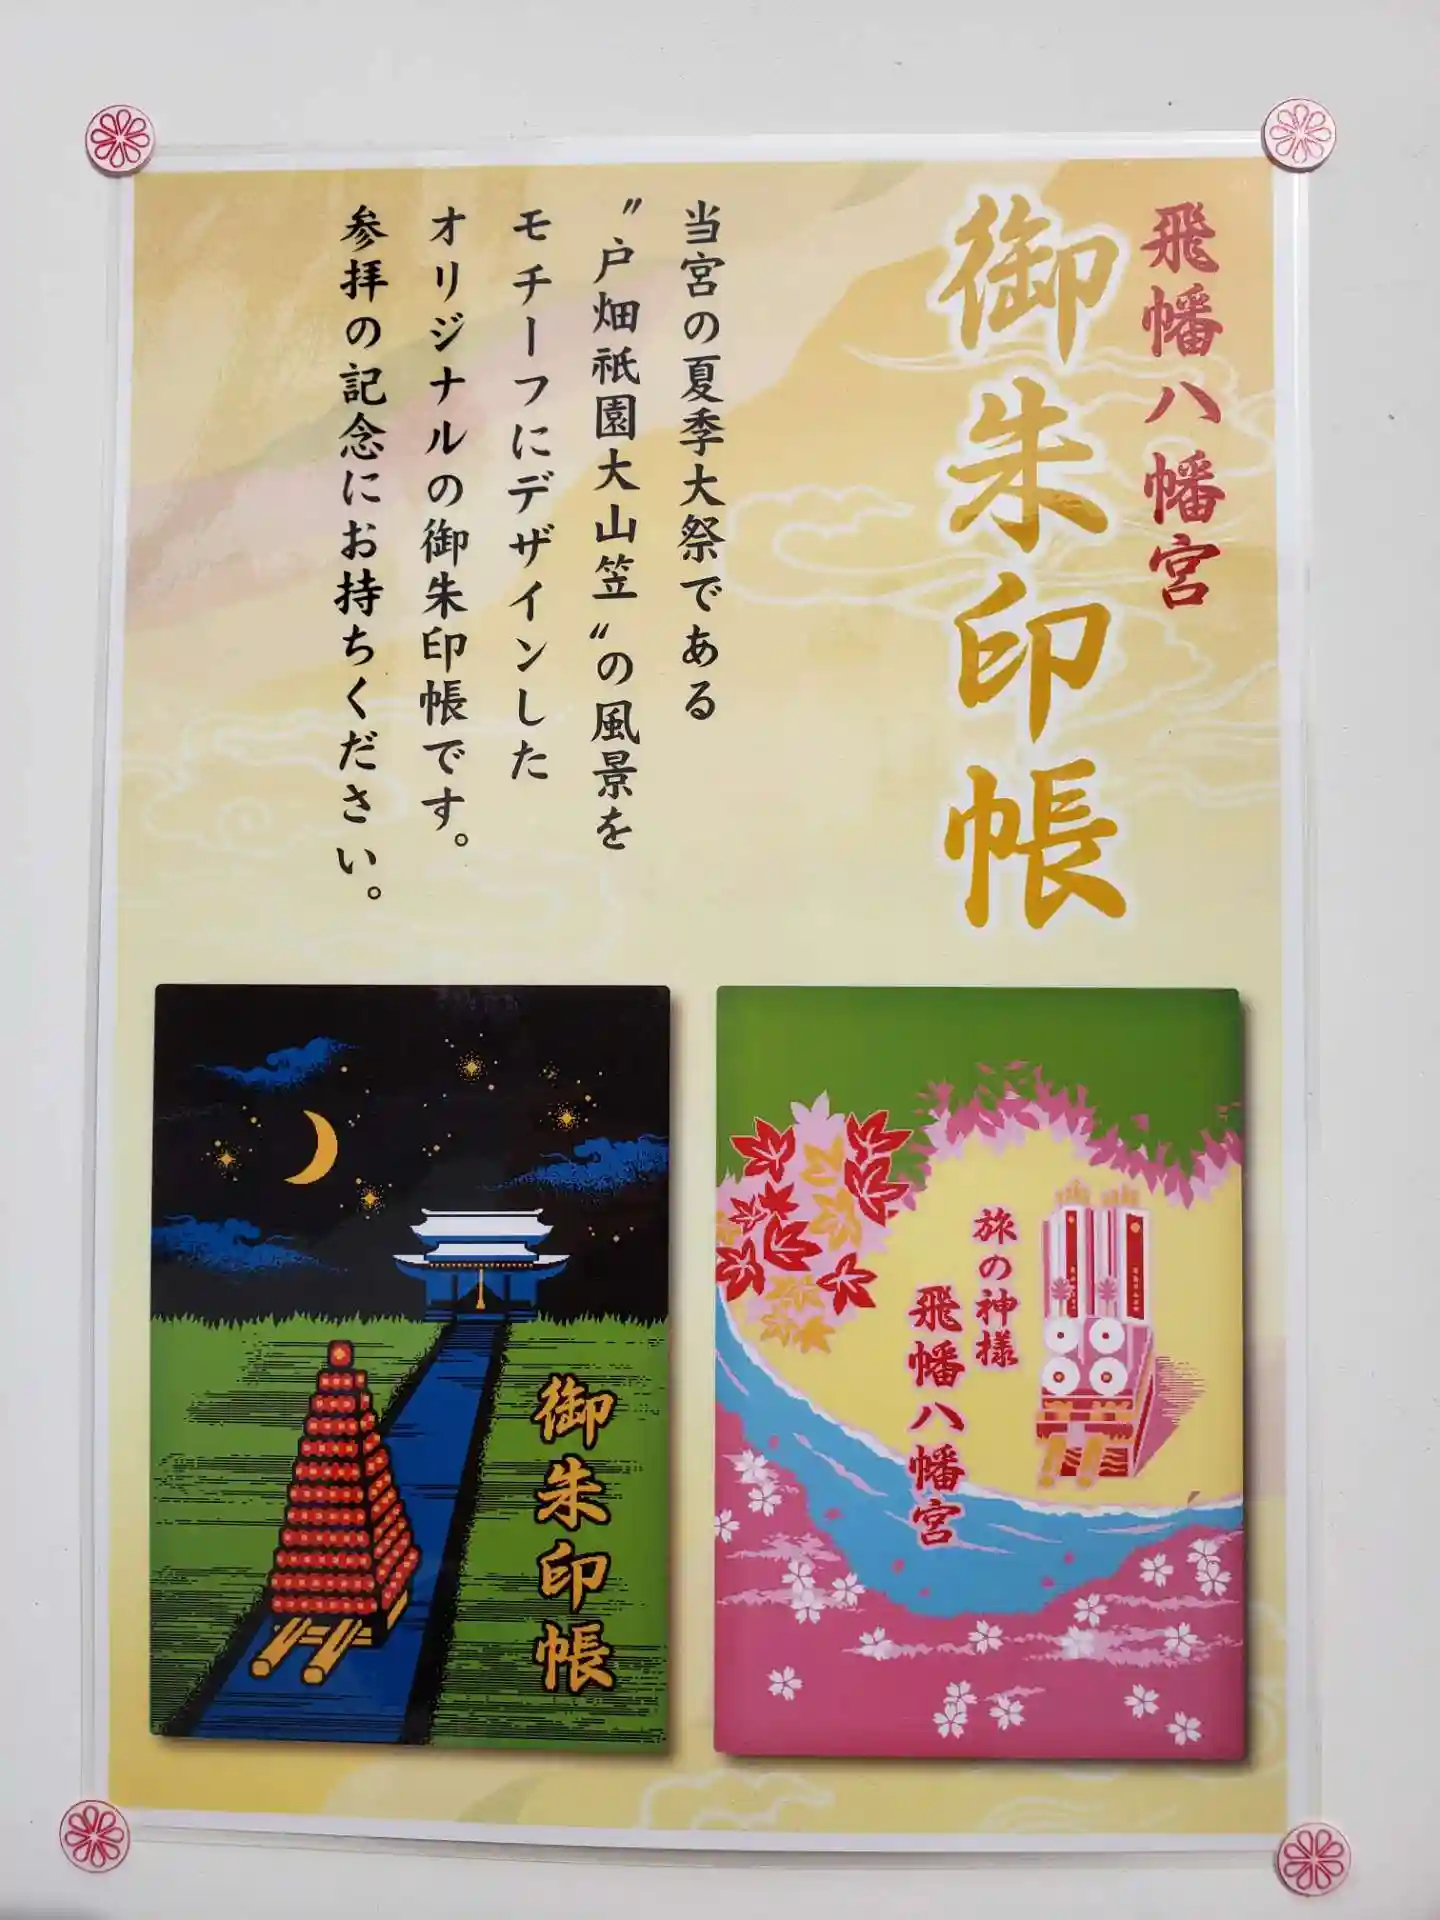 飛幡八幡宮
御朱印帳
当宮の夏季大祭である
〝戸畑祇園大山笠〟の風景を
モチーフにデザインした
オリジナルの御朱印帳です。
参拝の記念にお持ちください。
旅の神様
飛幡八幡宮
御朱印帳